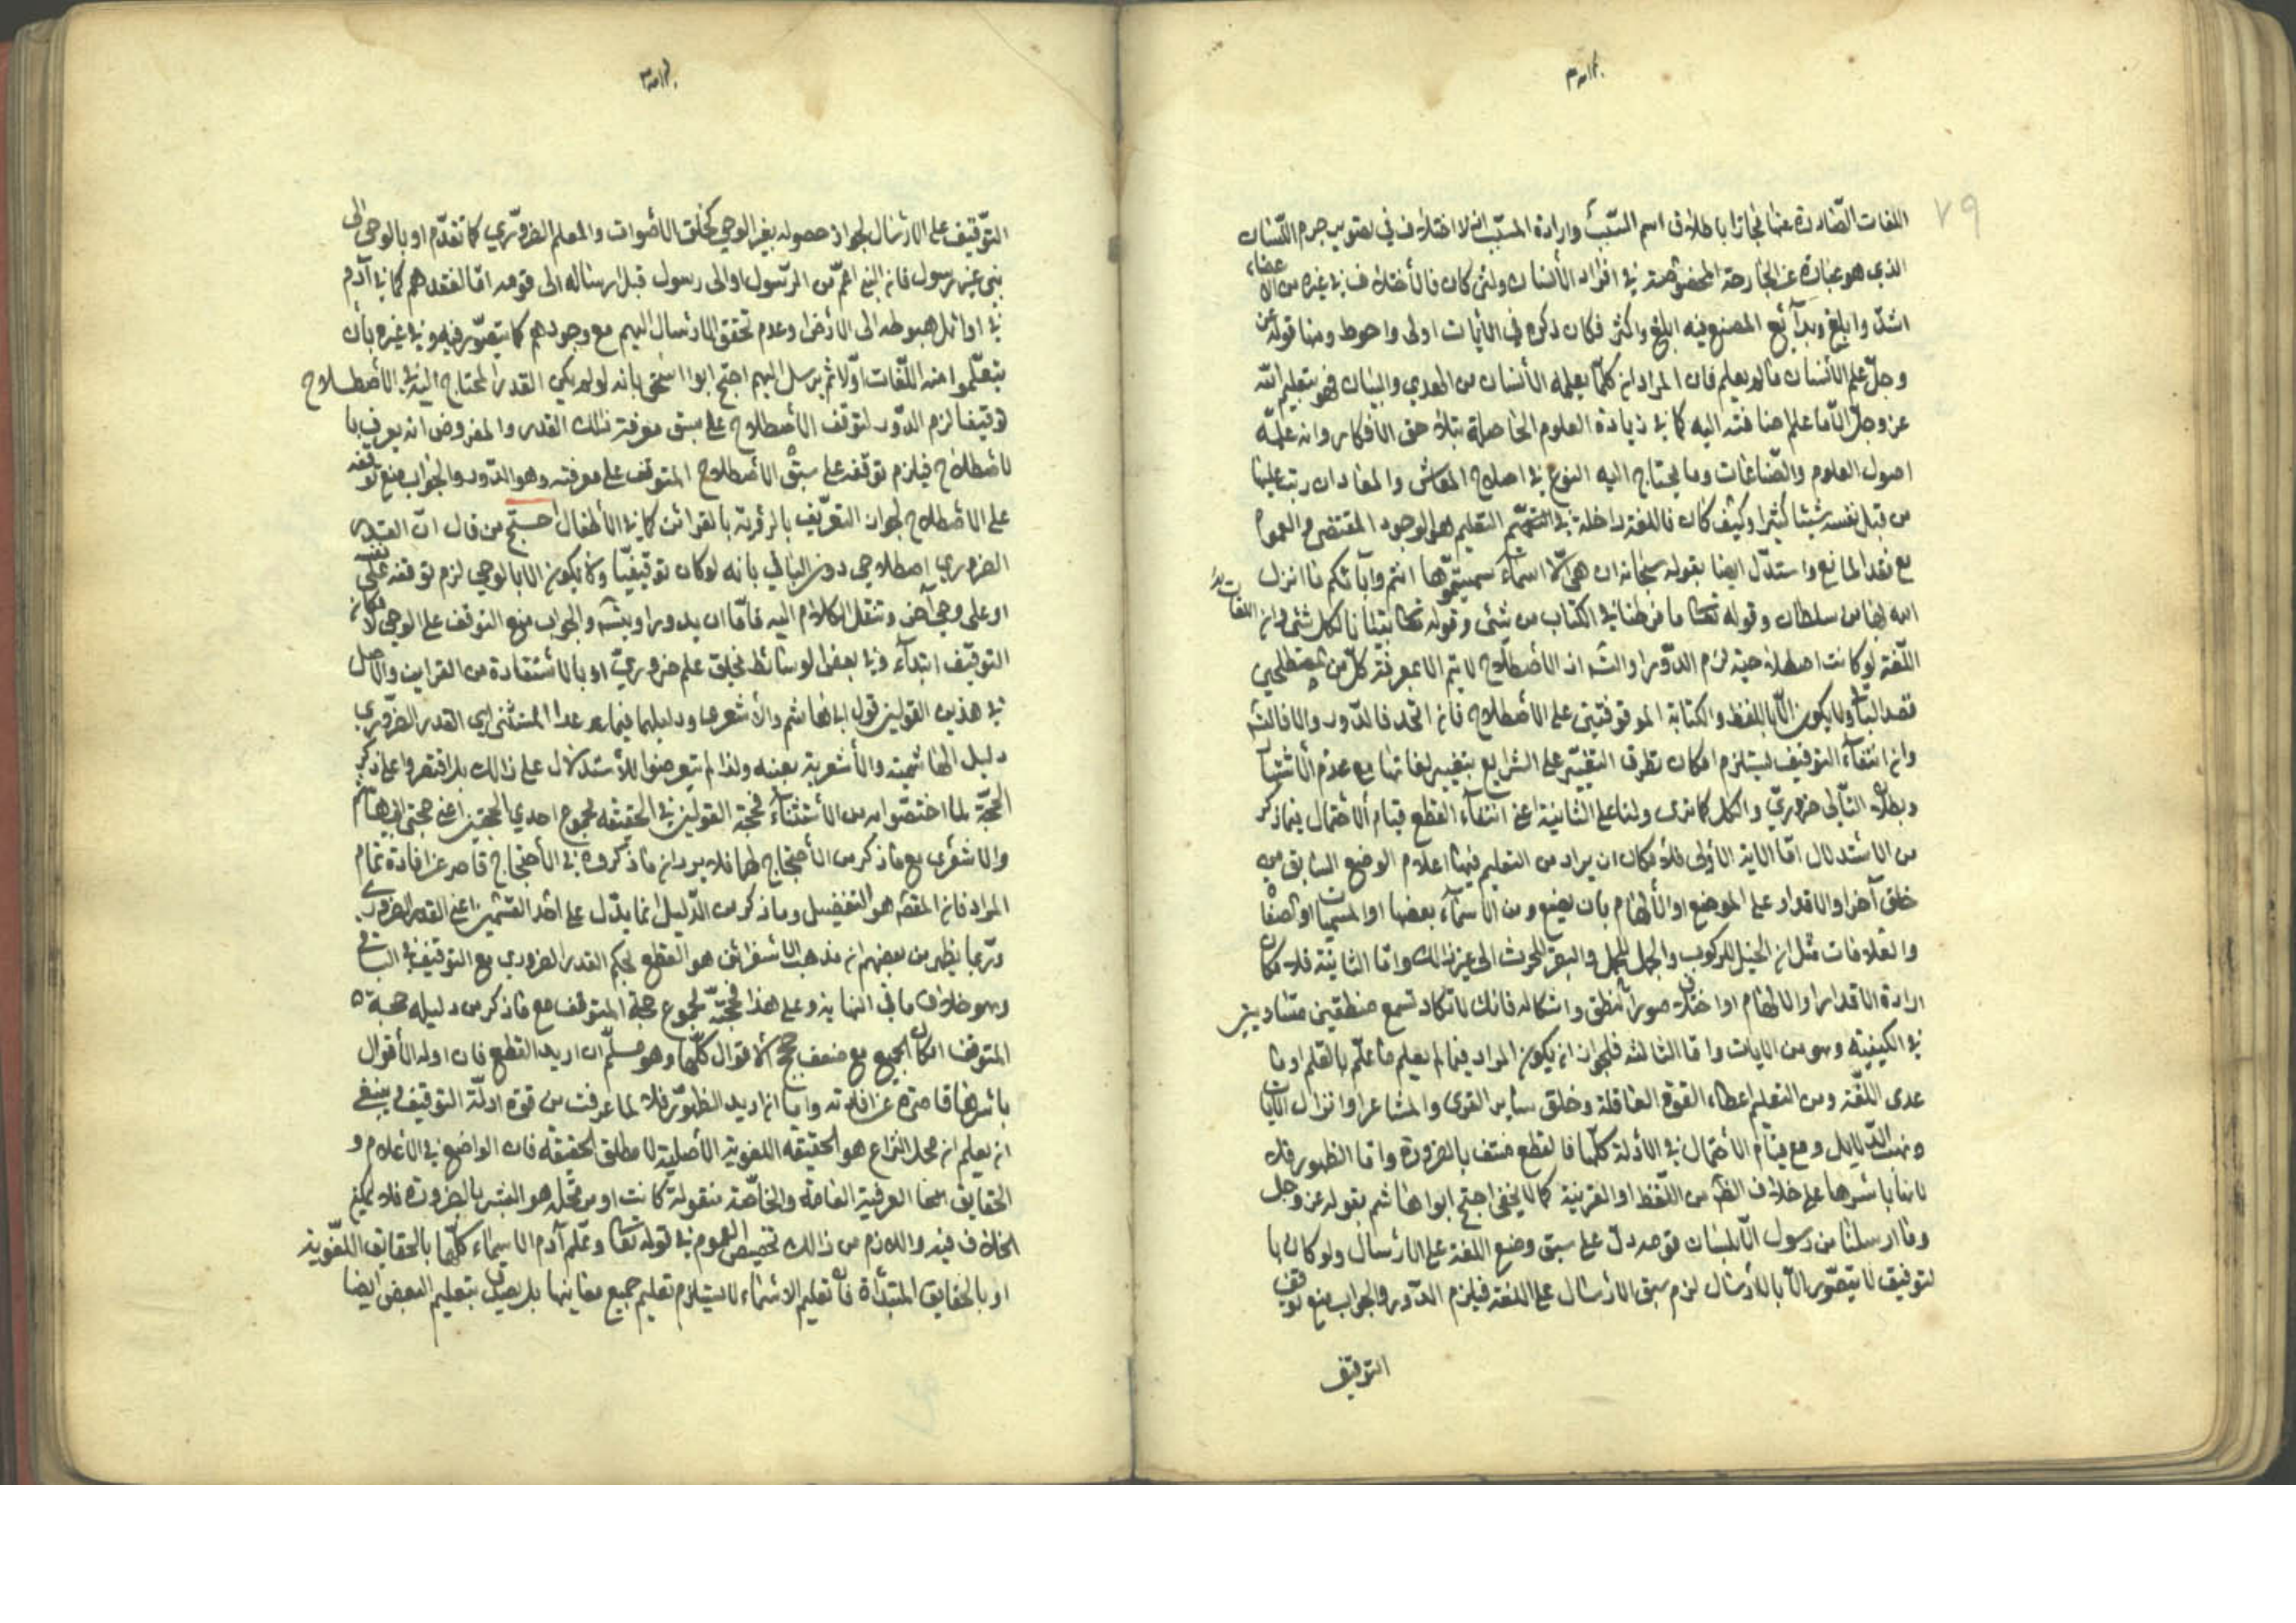 ٧٩
اللغات الصّادرة عنها مجازا باطلاق اسم السّبب وارادة المسبّب اذ لا اختلاف في تصوير جرم اللّسان
الذي هو عبارة عن الجارحة المخصوصة في افراد الأنسان ولئن كان فالأختلاف في غيره من الاعضاء
اشدّ وابلغ وبدآئع الصنع فيه ابلغ واكثر فكان ذكره في الأيات اولى واحوط ومنها قوله عزّ
وجلّ علم الأنسان ما لم يعلم فان المراد ان كلّما يعلمه الأنسان من الهدى والبيان فهو بتعليم الله
عز وجلّ اضافته اليه كما في زيادة العلوم الحاصلة بتلاحق الأفكار وانه علّمه
اصول العلوم والصّناعات وما يحتاج اليه النوع في اصلاح المعاش والمعاد ان رتب عليها
من قبل نفسه شيئا كثيرا وكيف كان فاللغة داخلة في التعليم لوجود المقتضي وهو العموم
مع فقد المانع واستدّل ايضا بقوله سبحانه ان هي الّا اسمآء سميتمّوها انتم وآبآئكم ما انزل
الله بها من سلطان وقوله تعالى ما فرطنا في الكتاب من شئ وقوله تعالى تبيانا لكل شئ وان اللغات
اللّغة لو كانت اصطلاحية لزم الدّور او التسـ اذ الأصطلاح لا يتم الا بمعرفة كلّ من المصطلحين
قصد الباقي ولا يكون الّا باللفظ والكتابة الموقوفتين على الأصطلاح فان اتحد فالدّور والا فالتسـ
وان انتفآء التوقيف يستلزم امكان تطرق التغيّر على الشرايع بتغيير لغاتها مع عدم الأشتهار
وبطلان التّالى ضروريّ والكل كما ترى ولنا على الثانية اعني انتفآء القطع قيام الأحتمال فيما ذكر
من الأستدلال امّا الاية الأولى فلامكان ان يراد من التعليم فيها اعلام الوضع السابق من
خلق آخر او الاقدار على الوضع او الألهام بان يضع ومن الأسمآء بعضها او المسميات او الصفات
والعلامات مثل ان الخيل للركوب والجمل للحمل والبقر للحرث الى غير ذالك وامّا الثانية فلامكان
ارادة الاقدار او الالهام او اختلاف صور النطق واشكاله فانك لا تكاد تسمع منطقين متساويين
في الكيفية وهو من الايات وامّا الثالثه فلجواز ان يكون المراد فيما لم يعلم ما علّم بالقلم او ما
عدى اللّغة ومن التعليم اعطاء القوة العاقلة وخلق ساير القوى والمشاعر او انزال الأيات
ونصب الدّلايل ومع قيام الأحتمال في الأدلة كلّها فالقطع منتف بالضرورة وامّا الظهور فلا
لانها باسرها على خلاف الظهـ من اللّفظ او القرينة كما لا يخفى احتج ابوا هاشم بقوله عز وجل
وما ارسلنا من رسول الّا بلسان قومه دلّ على سبق وضع اللغة على الارسال ولو كان بها
لتوقيف لا يتصّور الّا بالأرسال لزم سبق الأرسال على اللغة فيلزم الدّور والجواب منع توقف
التوقيف
التوقيف على الارسال لجواز حصوله بغير الوحي كخلق الأصوات والعلم الضروّري كما تقدّم او بالوحى الى
نبي غير رسول فان النبي اعمّ من الرّسول او الى رسول قبل ارساله الى قومه امّا لفقدهم كما في آدم
في اوائل هبوطه الى الارض او عدم تحقق الارسال اليهم مع وجودهم كما يتصّور فيه وفي غيره بأن
يتعلّموا منه اللّغات اوّلا ثم يرسل اليهم احتج ابوا اسحق بانه لو لم يكن القدر المحتاج اليه في الأصطلاح
توقيفا لزم الدّور لتوقف الأصطلاح على سبق معرفة ذلك القدر والمفروض انه يعرف با
لاصطلاح فيلزم توقفه على سبق الأصطلاح المتوقف على معرفته وهو الدّور والجواب منع توقفه
على الاصطلاح لجواز التعريف بالترديد بالقرائن كما في الأطفال احتج من قال انّ القدر
الضروري اصطلاحي دون الباقي بانه لو كان توقيفيّا ولا يكون الا بالوحي لزم توقفه على نفسه
او على وحي آخر وننقل الكلام اليه فامّا ان يدور او يتسـ والجواب منع التوقف على الوحي لامكان
التوقيف ابتدآء وفي بعض الوسائط بخلق علم ضروريّ او بالأستفادة من القراين والأصل
في هذين القولين قول ابي هاشم والأشعري ودليلهما فيما عدا المستثنى اي القدر الضروّري
دليل الهاشمية والأشعرية بعينه ولذا لم يتعرضوا للأستدلال على ذالك بل اقتصروا على ذكر
الحجّة لما اختصّوا به من الأستثنآء فحجة القولين في الحقيقه مجموع احدي الحجتين اعني حجتي ابي هاشم
والاشعري مع ما ذكر من الأحتجاج لهما فلا يرد ان ما ذكروه في الأحتجاج قاصر عن افادة تمام
المراد فان المقصـ هو التفضيل وما ذكر من الدّليل انما يدّل على احد القسمين اعني القدر الضروري
وربّما يظهر من بعضهم ان مذهب الاسفرائني هو القطع بحكم القدر الضروري مع التوقف في الباقي
وهو خلاف ما في النهاية وعلى هذا فحجتّه مجموع حجة المتوقف مع ما ذكر من دليله حجة
المتوقف امكان الجميع مع ضعف حجج الأقوال كلّها وهو مسلّم ان اريد القطع فان ادلة الأقوال
باسرها قاصرة عن افادته وامّا ان اريد الظهور فلا لما عرفت من قوة ادلّة التوقيف وينبغي
ان يعلم ان محل النزاع هو الحقيقه اللغوية الأصلية لا مطلق الحقيقه فان الواضع في الأعلام و
الحقايق العرفية العامة والخاصّة منقولة كانت او مرتجله هو البشر بالضرورة فلا يمكن
الخلاف فيه واللازم من ذالك تخصيص العموم في قوله تعالى وعلّم آدم الاسماء كلّها بالحقايق اللغوية
او بالحقايق المبتدأة فان تعليم الاسماء لا يستلزم تعليم جميع معانيها بل يصدق بتعليم البعض ايضا